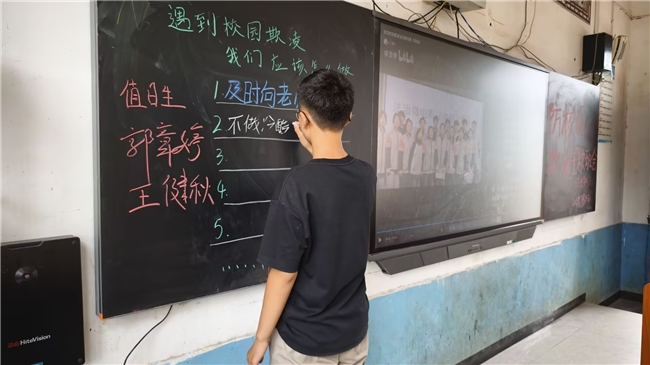 遇到校园欺凌
我们应该怎么做
值日生
郭章婷
王健秋
1.及时向老
2.不做"冷酷
3.
4.
5.
......
HiteVision